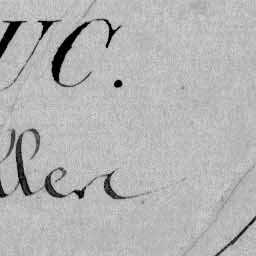 UC.
llen